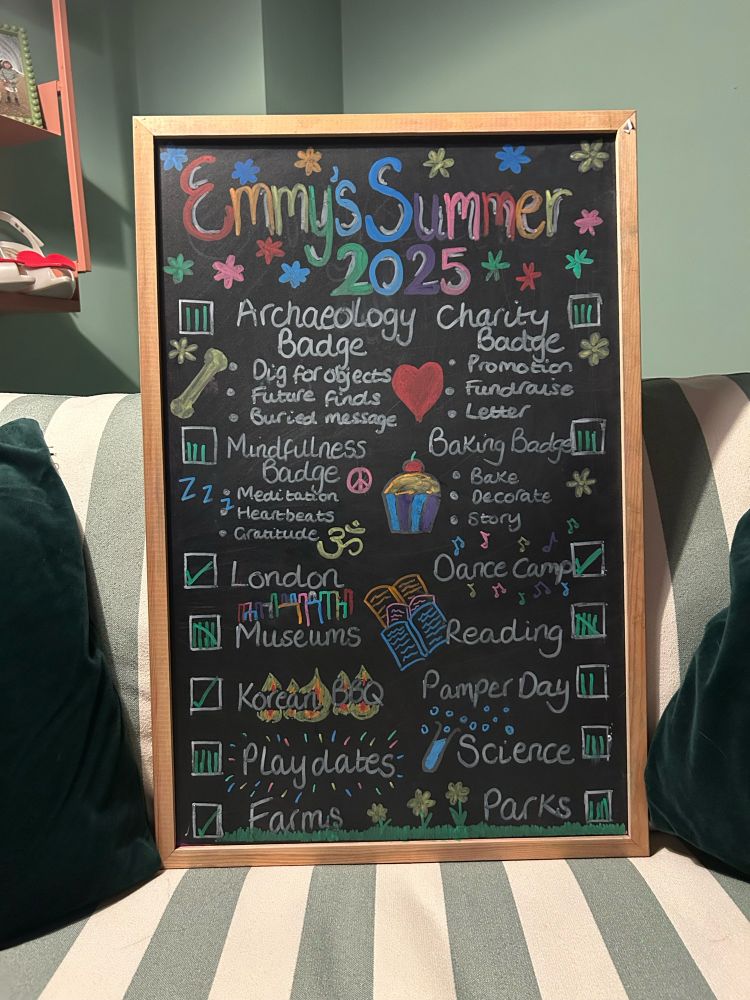 Emmy's Summer
2025
Archaeology
Badge
• Dig for objects
• Future finds
• Buried message
Charity
Badge
• Promotion
• Fundraise
• Letter
Mindfulness
Badge
• Meditation
• Heartbeats
• Gratitude
Z Z Z
ॐ
Baking Badge
• Bake
• Decorate
• Story
London
Dance Camp
Museums
Reading
Korean BBQ
Pamper Day
Playdates
Science
Farms
Parks